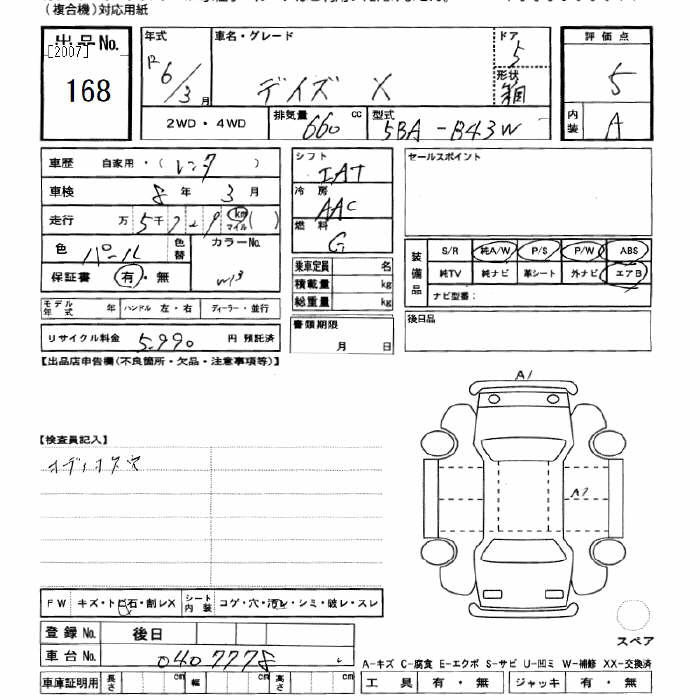 (複合機)対応用紙
出品No.
[2007]
168
年式
R6/3月
車名・グレード
デイズ X
ドア
5
形状
箱
評価点
5
内装
A
2WD・4WD
排気量
660
cc
型式
5BA-B43W
車歴 自家用・(レンタ)
車検 8年3月
走行 万5千 km マイル ( )
色 パール
色替
カラーNo.
保証書 有・無
モデル年式 年 ハンドル 左・右 ディーラー・並行
リサイクル料金 5,990 円 預託済
シフト
IAT
冷房
AAC
燃料
G
乗車定員 名
積載量 kg
総重量 kg
書類期限
月 日
セールスポイント
装備品
S/R 純A/W P/S P/W ABS
純TV 純ナビ 革シート 外ナビ エアB
ナビ型番:
後日品
【出品店申告欄(不良箇所・欠品・注意事項等)】
A1
【検査員記入】
オディオ欠
FW キズ・トビ石・割レX シート内装 コゲ・穴・汚レ・シミ・破レ・スレ
登録No. 後日
車台No. 0407778
車庫証明用 長さ cm 幅 cm 高さ cm
スペア
A-キズ C-腐食 E-エクボ S-サビ U-凹ミ W-補修 XX-交換済
工具 有・無 ジャッキ 有・無